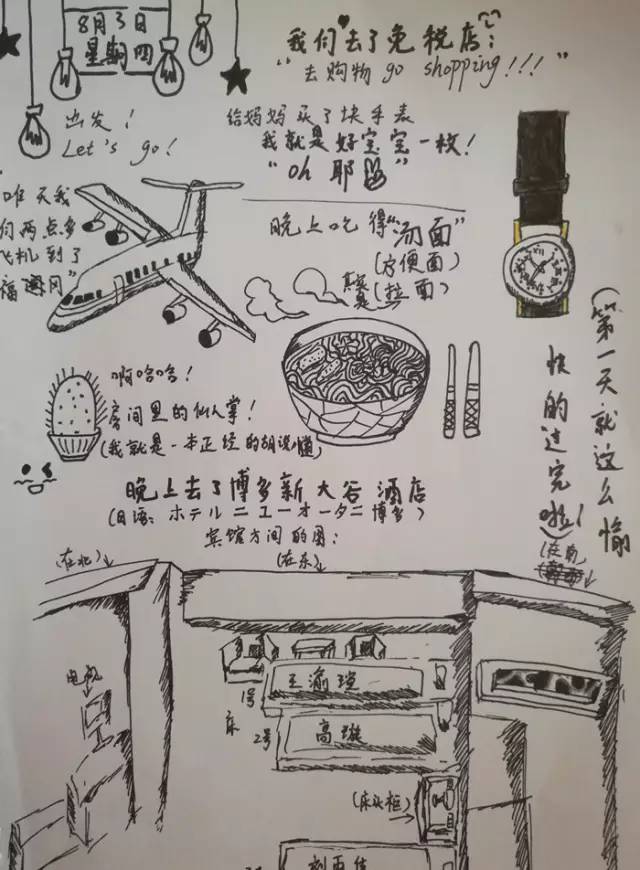 8月3日
星期四
我们去了免税店:
"去购物 go shopping!!!"
给妈妈买了块手表
我就是好宝宝一枚!
"oh 耶"
出发!
Let's go!
天我
们两点多
飞机到了
福冈"
晚上吃得"汤面"
(方便面)
(拉面)
啊哈哈!
房间里的仙人掌!
(我就是一本正经的胡说
(第一天就这么愉
快的过完啦!
晚上去了博多新大谷酒店
(日语: ホテルニューオータニ博多)
宾馆方间的图:
(在北)
(在东)
(在南)
电视
1号
床
2号
高璇
(床头柜)